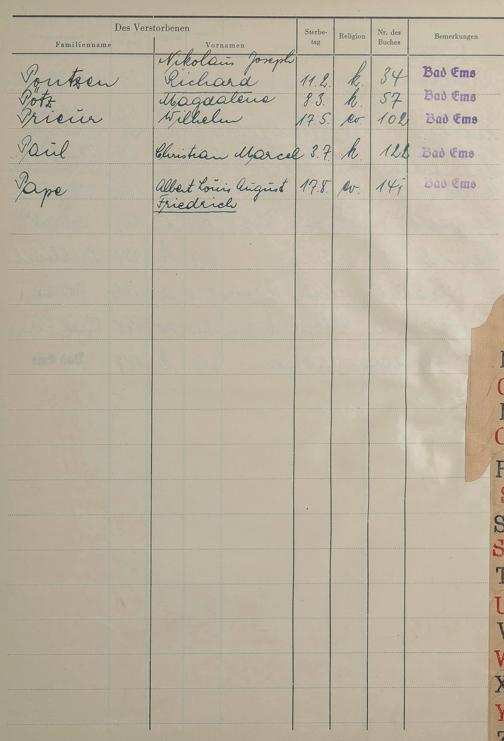 Des Verstorbenen
Familienname Vornamen Sterbe-tag Religion Nr. des Buches Bemerkungen
Nikolaus Joseph
Pontzen Richard 11.2. k 34 Bad Ems
Pötz Magdalene 8.3. k. 57 Bad Ems
Prieur Wilhelm 17.5. ev 102 Bad Ems
Paul Christian Marcel 3.7 k 122 Bad Ems
Pape Albert Louis August 17.8. ev. 141 Bad Ems
Friedrich
T
U
V
W
X
Y